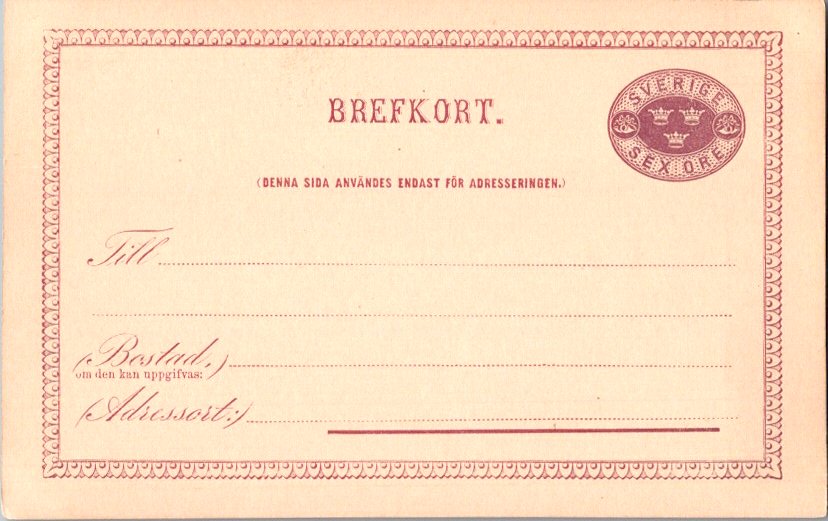 BREFKORT.
SVERIGE
6 6
SEX ÖRE
(DENNA SIDA ANVÄNDES ENDAST FÖR ADRESSERINGEN.)
Till
(Bostad,)
om den kan uppgifvas:
(Adressort:)